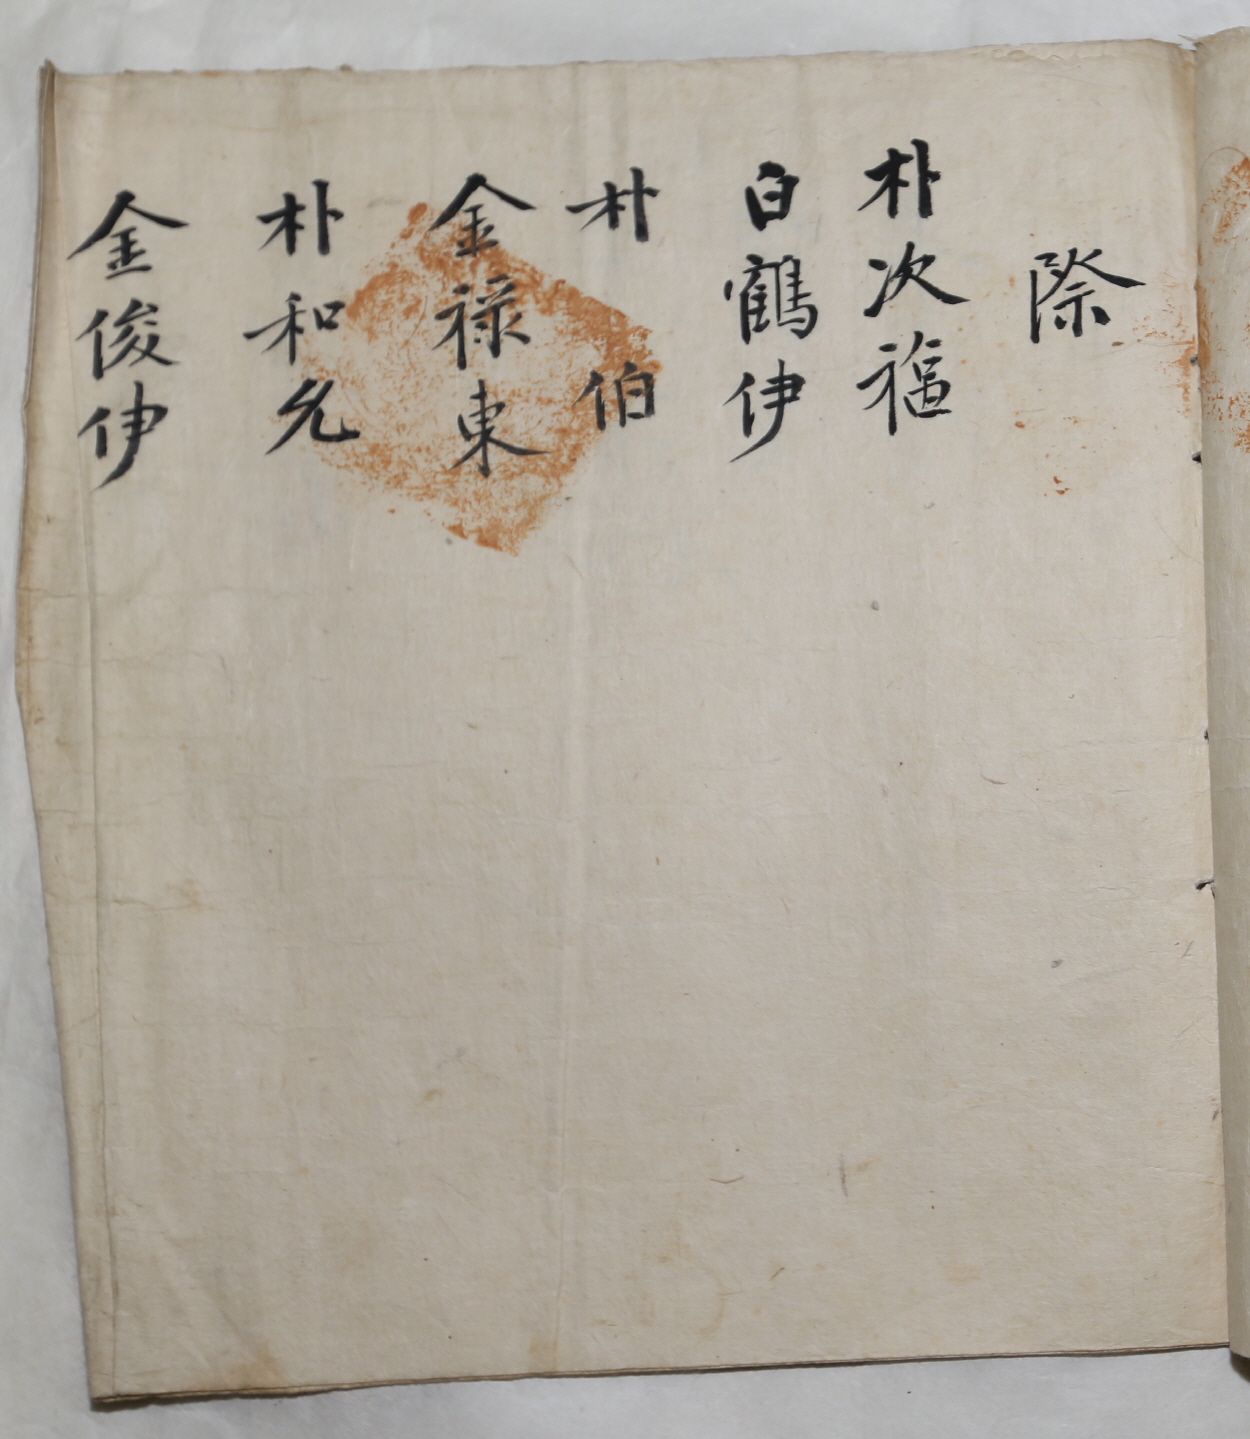 際
朴次福
白鶴伊
朴伯
金祿東
朴和允
金俊伊